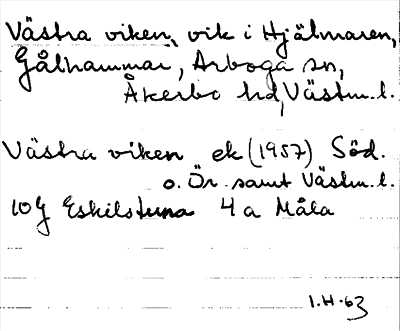 Västra viken, vik i Hjälmaren,
Gålhammar, Arboga sn,
Åkerbo hd, Västm.l.
Västra viken ek (1957) Söd.
o. Ör. samt Västm.l.
10G Eskilstuna 4a Måla
1.H.63